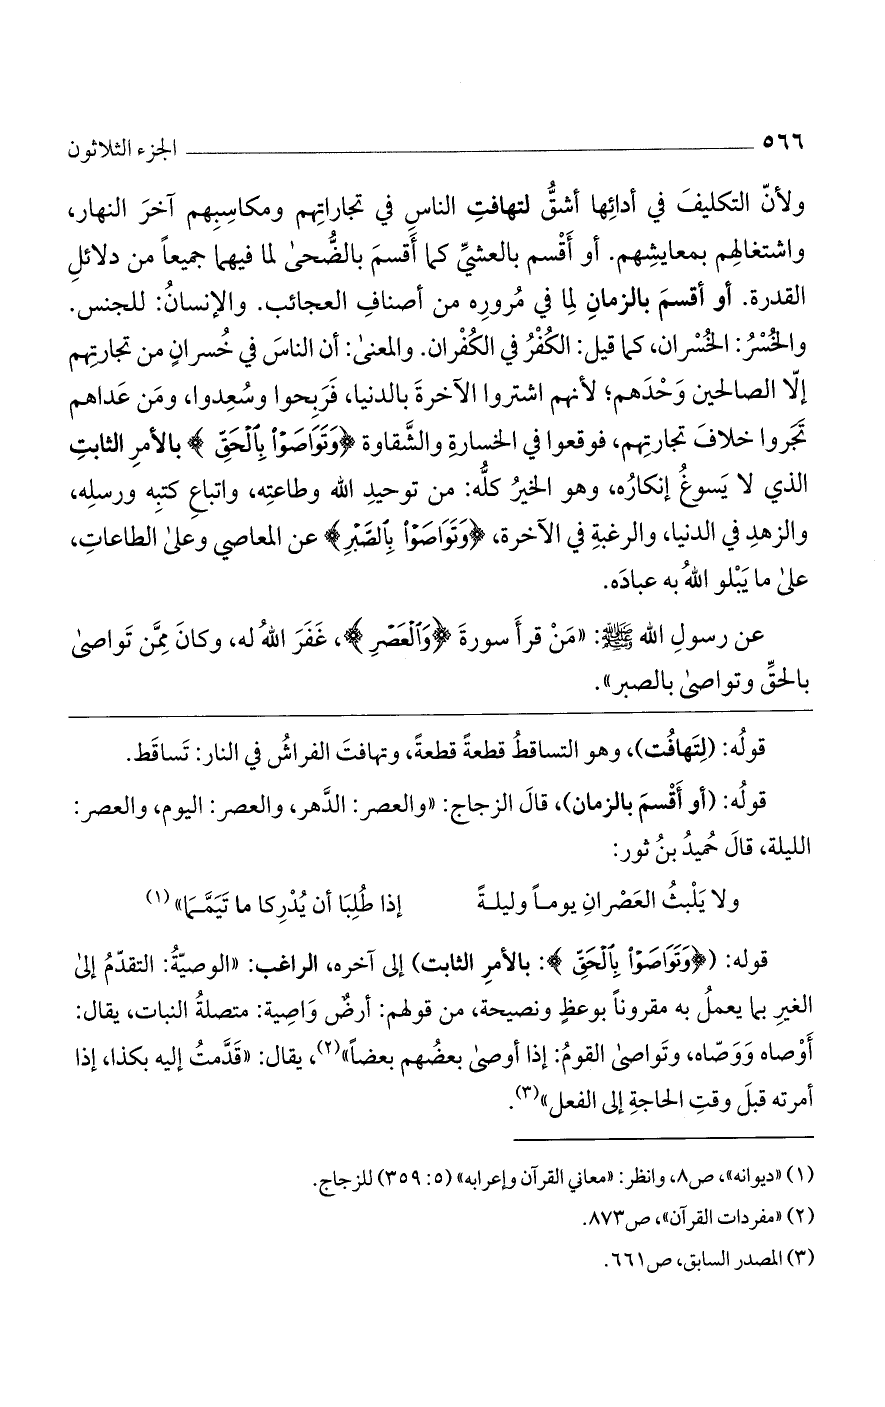 ٥٦٦ الجزء الثلاثون
ولأنّ التكليفَ في أدائِها أشقُّ لتهافتِ الناسِ في تجاراتِهم ومكاسِبِهم آخرَ النهار،
واشتغالِهم بمعايشِهم. أو أَقْسم بالعشيِّ كما أَقسمَ بالضُّحىٰ لما فيهما جميعاً من دلائلِ
القدرة. أو أقسمَ بالزمانِ لِما في مُرورِه من أصنافِ العجائب. والإنسانُ: للجنس.
والخُسْرُ: الخُسْران، كما قيل: الكُفْرُ في الكُفْران. والمعنىٰ: أن الناسَ في خُسرانٍ من تجارتِهم
إلّا الصالحين وَحْدَهم؛ لأنهم اشتروا الآخرةَ بالدنيا، فَرَبِحوا وسُعِدوا، ومَن عَداهم
تَجَروا خلافَ تجارتِهم، فوقعوا في الخسارةِ والشَّقاوة ﴿وَتَوَاصَوْا۟ بِٱلْحَقِّ﴾ بالأمرِ الثابتِ
الذي لا يَسوغُ إنكارُه، وهو الخيرُ كلُّه: من توحيدِ الله وطاعتِه، واتباعِ كتبِه ورسلِه،
والزهدِ في الدنيا، والرغبةِ في الآخرة، ﴿وَتَوَاصَوْا۟ بِٱلصَّبْرِ﴾ عن المعاصي وعلىٰ الطاعاتِ،
علىٰ ما يَبْلو اللهُ به عبادَه.
عن رسولِ الله ﷺ: «مَنْ قرأَ سورةَ ﴿وَٱلْعَصْرِ﴾، غَفَرَ اللهُ له، وكانَ مِمَّن تَواصىٰ
بالحقِّ وتواصىٰ بالصبر».
قولُه: (لِتَهافُت)، وهو التساقطُ قطعةً قطعةً، وتهافتَ الفراشُ في النار: تَساقَط.
قولُه: (أو أَقْسمَ بالزمان)، قالَ الزجاج: «والعصر: الدَّهر، والعصر: اليوم، والعصر:
الليلة، قالَ حُميدُ بنُ ثور:
ولا يَلْبثُ العَصْرانِ يوماً وليلةً إذا طُلِبَا أن يُدْرِكا ما تَيَمَّمَا»(١)
قوله: (﴿وَتَوَاصَوْا۟ بِٱلْحَقِّ﴾: بالأمرِ الثابت) إلى آخره، الراغب: «الوصيّةُ: التقدّمُ إلىٰ
الغيرِ بما يعملُ به مقروناً بوعظٍ ونصيحة، من قولهم: أرضٌ وَاصِية: متصلةُ النبات، يقال:
أَوْصاه وَوَصّاه، وتَواصىٰ القومُ: إذا أوصىٰ بعضُهم بعضاً»(٢)، يقال: «قَدَّمتُ إليه بكذا، إذا
أمرته قبلَ وقتِ الحاجةِ إلى الفعل»(٣).
(١) «ديوانه»، ص٨، وانظر: «معاني القرآن وإعرابه» (٥: ٣٥٩) للزجاج.
(٢) «مفردات القرآن»، ص٨٧٣.
(٣) المصدر السابق، ص٦٦١.